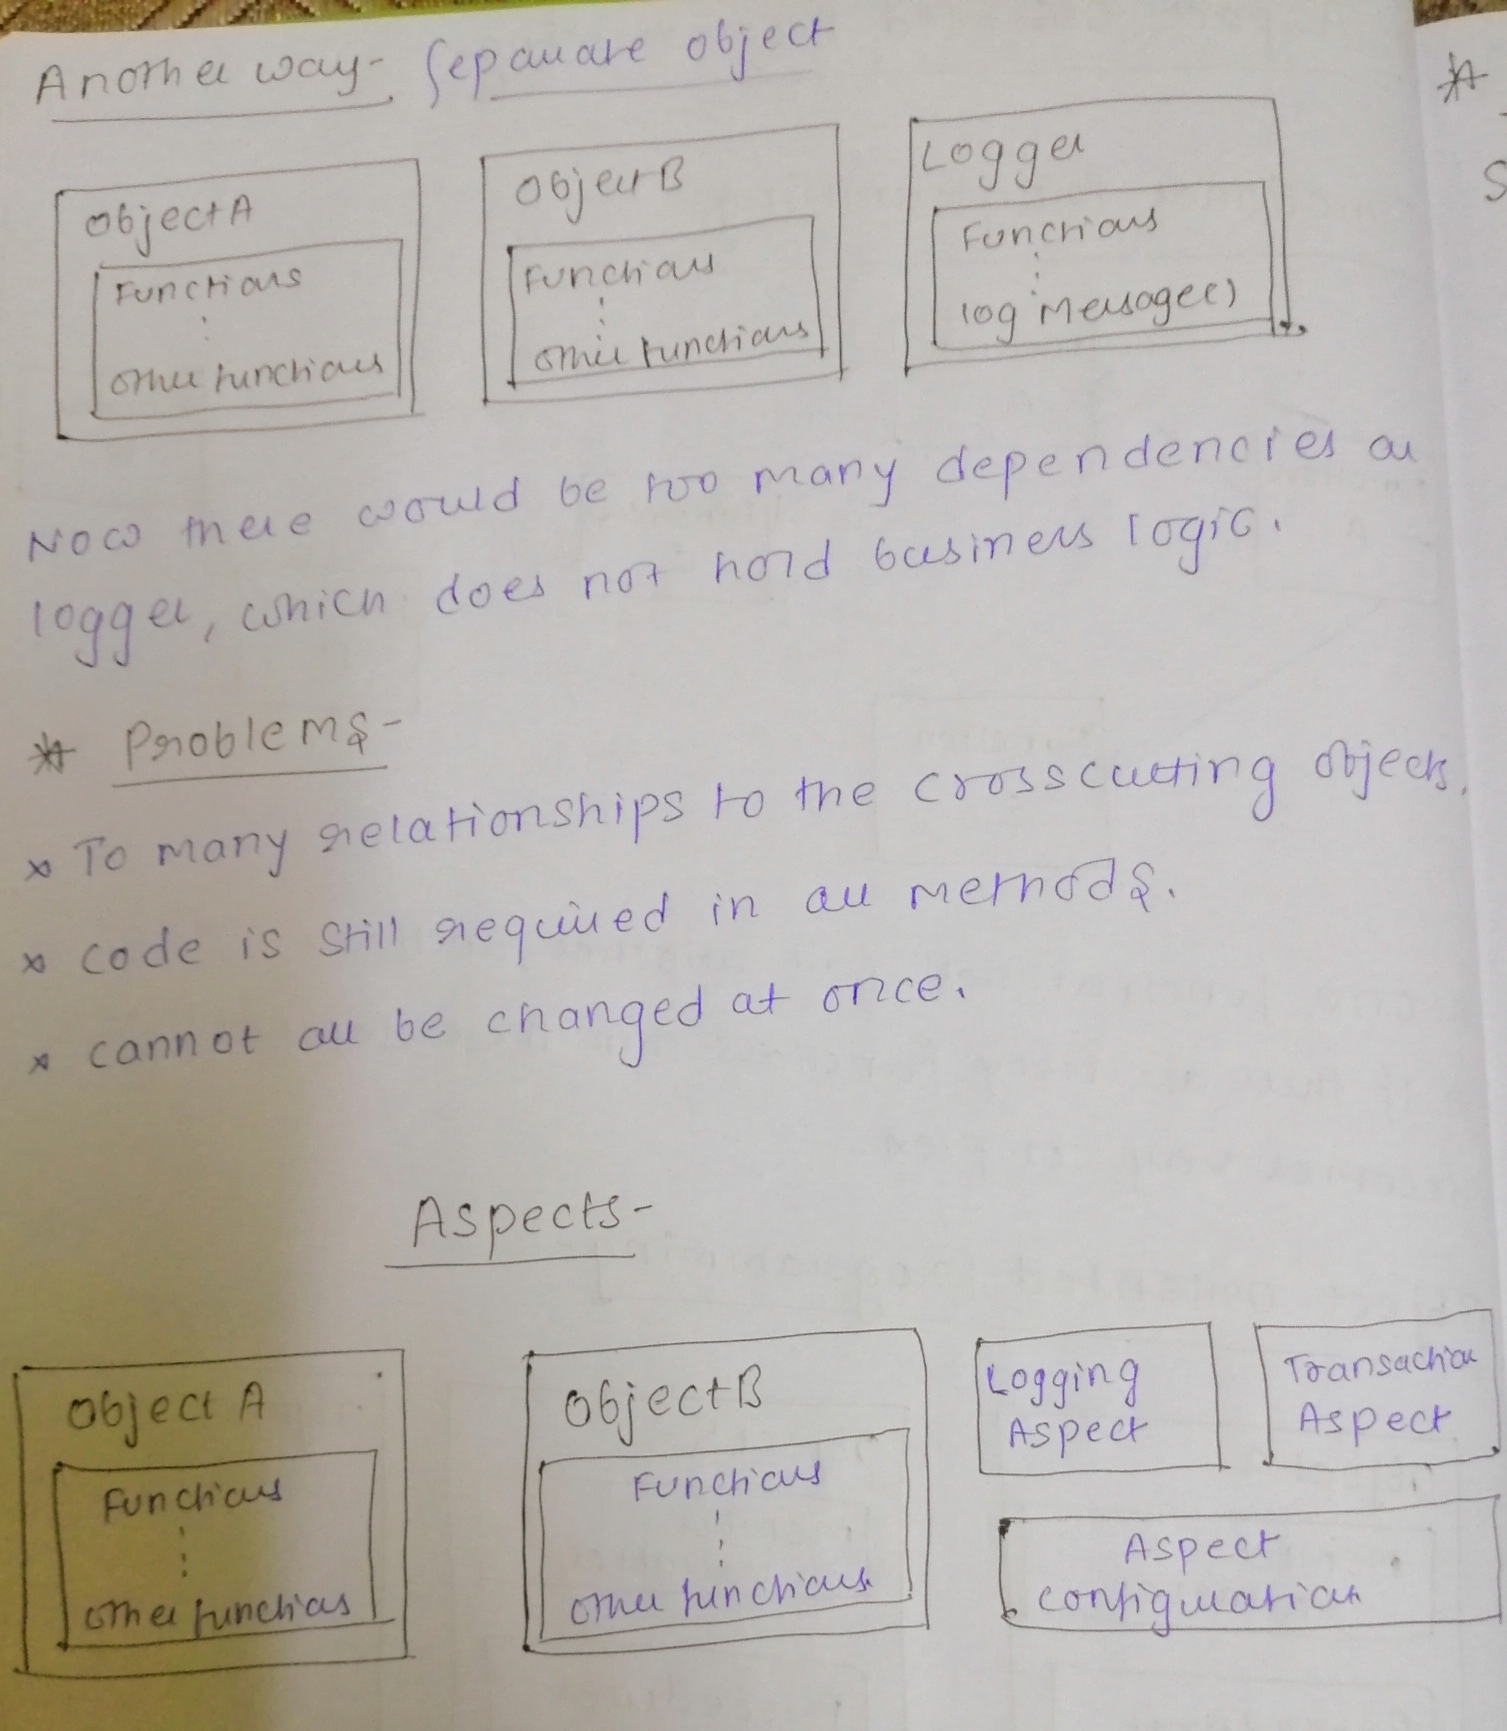 Another way- Separate object
Object A
Functions
other functions
Object B
Functions
other functions
Logger
Functions
log Message()
Now there would be too many dependencies on
logger, which does not hold business logic.
* Problems-
* To many relationships to the crosscutting objects.
* code is still required in all methods.
* cannot all be changed at once.
Aspects-
Object A
Functions
other functions
Object B
Functions
other functions.
Logging
Aspect
Transaction
Aspect
Aspect
configuration
*
S